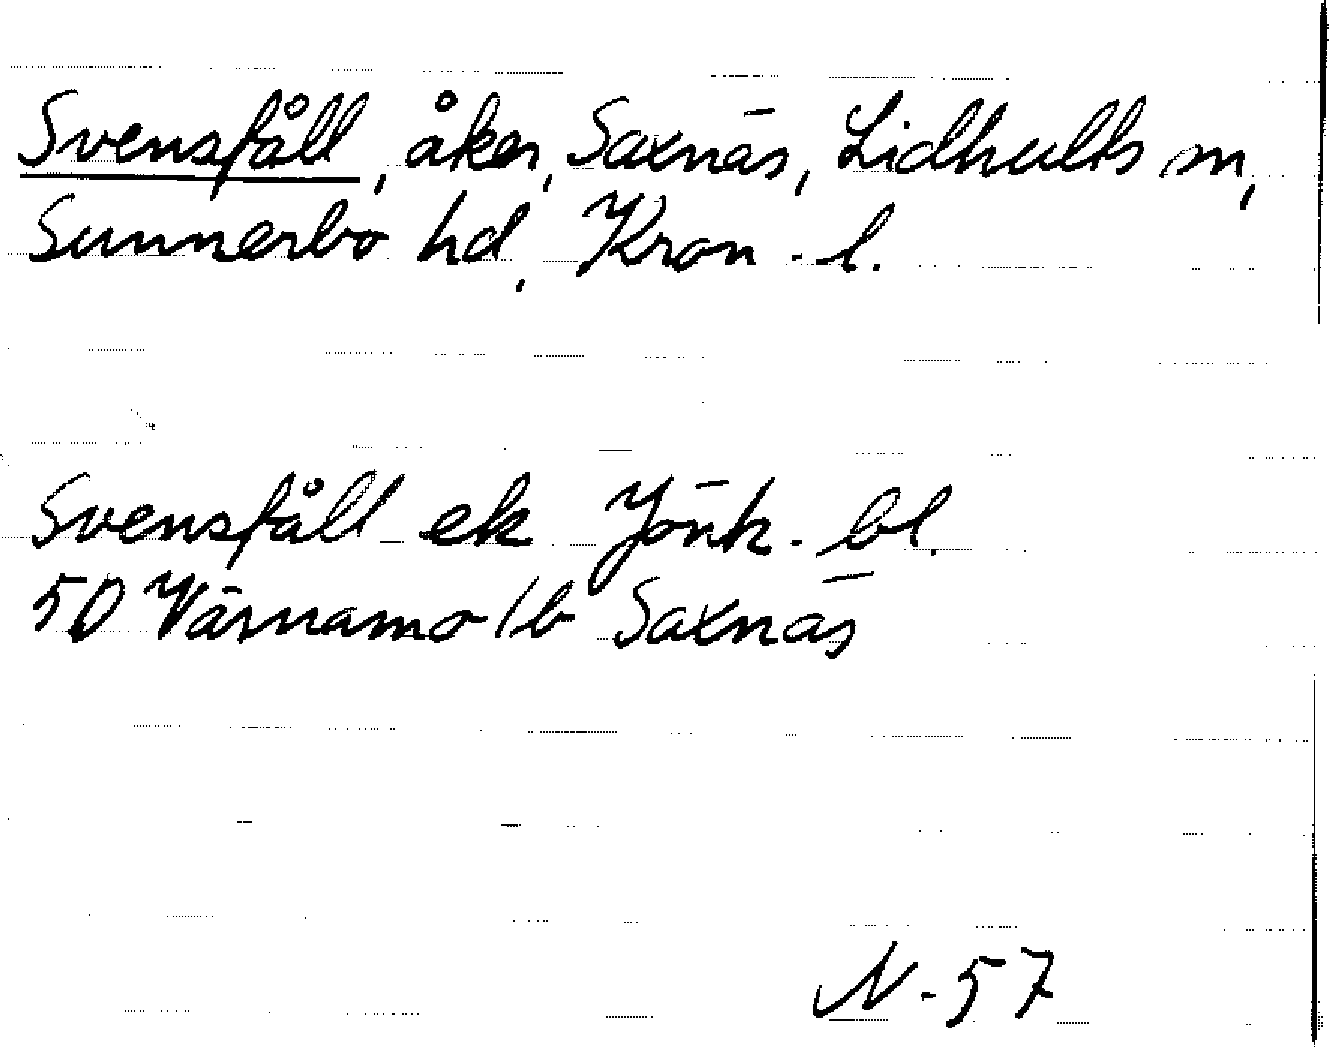 Svensfåll, åker, Saxnäs, Lidhults sn,
Sunnerbo hd, Kron. l.
Svensfåll ek Jönk. bl.
50 Värnamo / b Saxnäs
N. 57